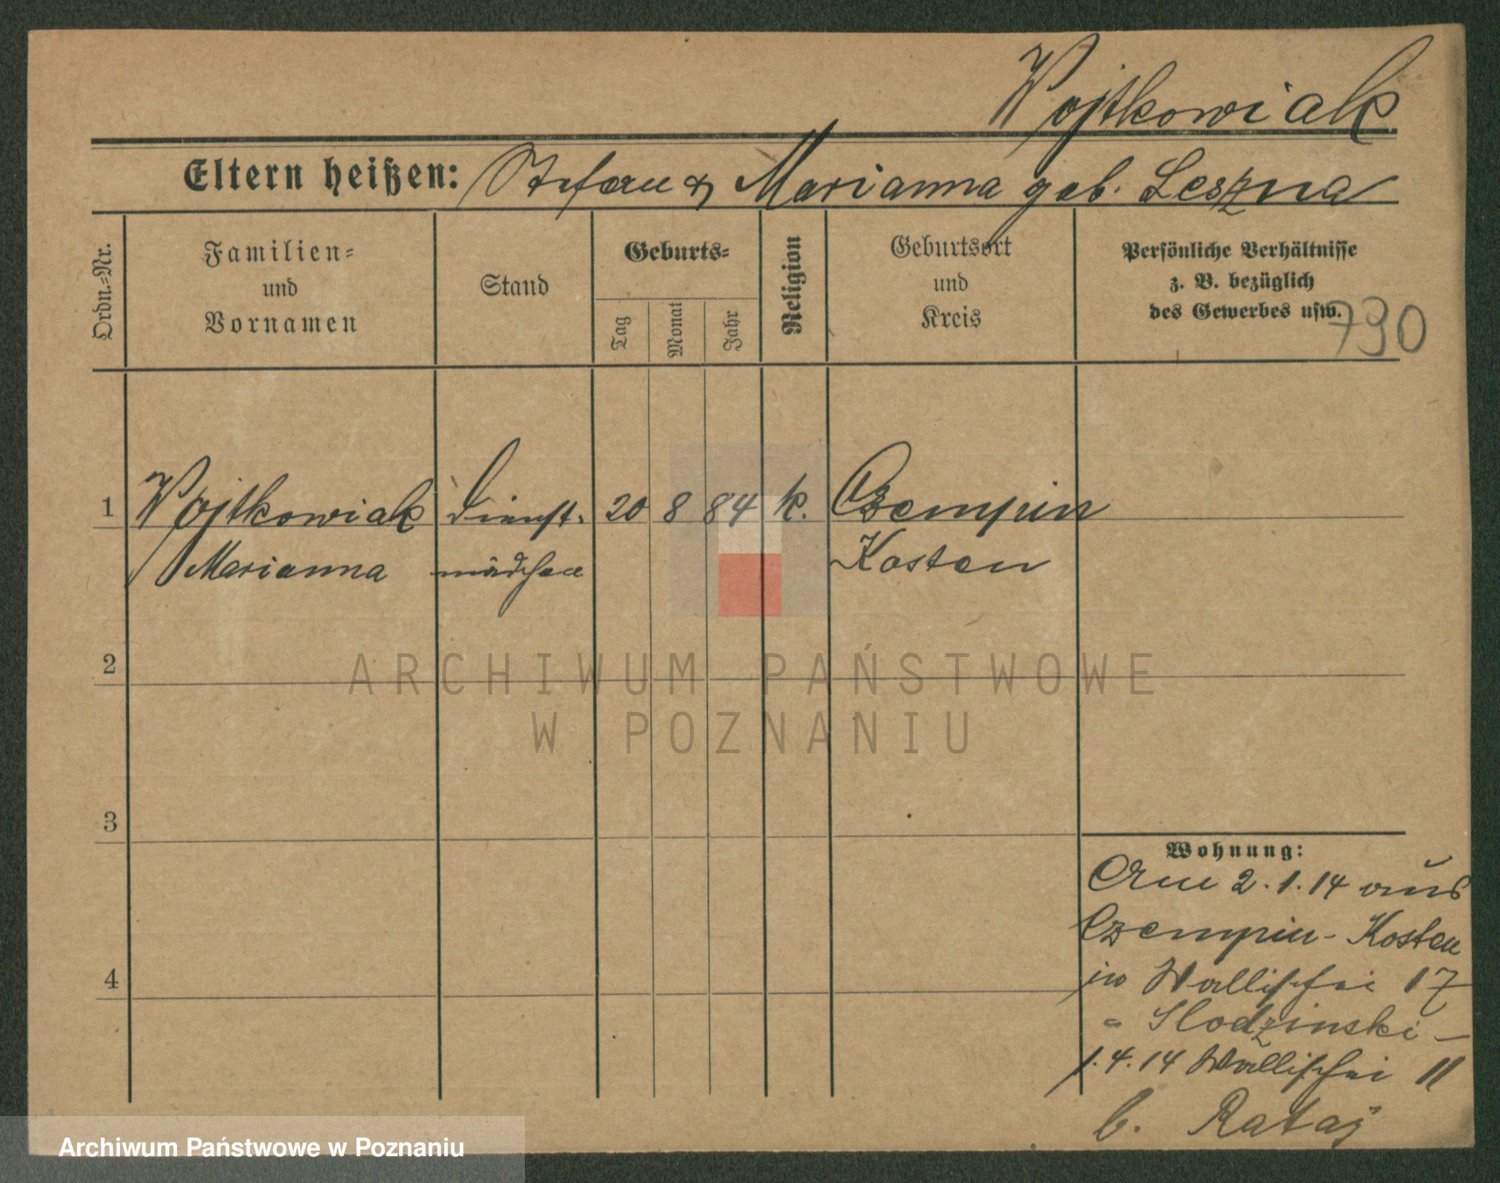 Wojtkowiak.
Eltern heißen: Stefan u Marianna geb. Leszna
Ordn.=Nr.
Familien=
und
Vornamen
Stand
Geburts=
Tag
Monat
Jahr
Religion
Geburtsort
und
Kreis
Persönliche Verhältnisse
z. B. bezüglich
des Gewerbes usw.
790
1 Wojtkowiak Dienst- 20 8 84 k. Czempin
Marianna mädchen Kosten
2
ARCHIWUM PAŃSTWOWE
W POZNANIU
3
4
Wohnung:
Am 2.1.14 aus
Czempin - Kosten
in Wallischei 17
Slodzinski -
1.4.14 Wallischei 11
b. Rataj
Archiwum Państwowe w Poznaniu